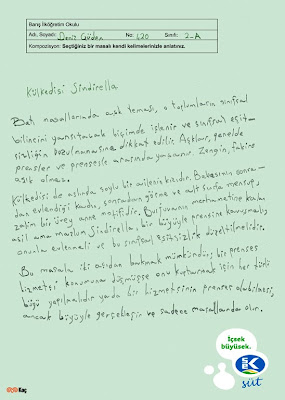 Barış İlköğretim Okulu
Adı, Soyadı: Deniz Güden No: 120 Sınıfı: 2-A
Kompozisyon: Seçtiğiniz bir masalı kendi kelimelerinizle anlatınız.
Külkedisi Sindirella
Batı masallarında aşk teması, o toplumların sınıfsal
bilincini yansıtacak biçimde işlenir ve sınıfsal eşit-
sizliğin bozulmamasına dikkat edilir. Aşklar, genelde
prensler ve prensesler arasında yaşanır. Zengin, fakire
aşık olmaz.
Külkedisi de aslında soylu bir ailenin kızıdır. Babasının sonra-
dan evlendiği kadın, sonradan görme ve alt sınıfa mensup,
zalim bir üvey anne motifidir. Burjuvanın merhametine kalan
asil ama mazlum Sindirella, bir büyüyle prensine kavuşmalı,
onunla evlenmeli ve bu sınıfsal eşitsizlik düzeltilmelidir.
Bu masala iki açıdan bakmak mümkündür; bir prenses
hizmetçi konumuna düşmüşse onu kurtarmak için her türlü
büyü yapılmalıdır ya da bir hizmetçinin prenses olabilmesi,
ancak büyüyle gerçekleşir ve sadece masallarda olur.
İçsek
büyüsek.
SEK
süt
Kaç